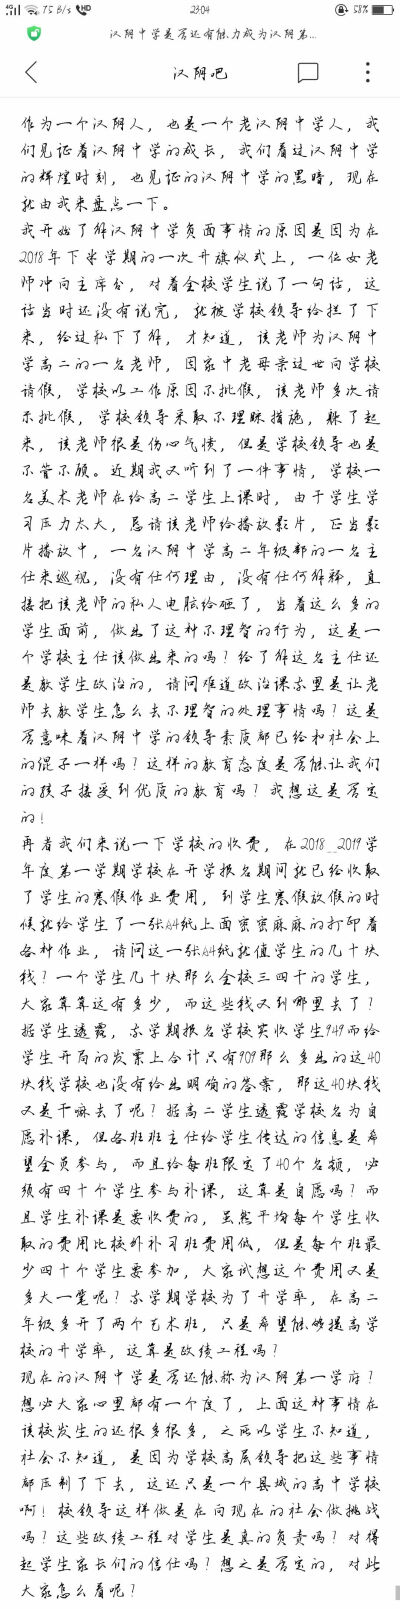 4G 7.5 B/s HD 23:04 58%
汉阴中学是否还有能力成为汉阴第...
汉阴吧
作为一个汉阴人，也是一个老汉阴中学人，我
们见证着汉阴中学的成长，我们看过汉阴中学
的辉煌时刻，也见证的汉阴中学的黑暗，现在
就由我来盘点一下。
我开始了解汉阴中学负面事情的原因是因为在
2018年下半学期的一次升旗仪式上，一位女老
师冲向主席台，对着全校学生说了一句话，这
话当时还没有说完，就被学校领导给拦了下
来，经过私下了解，才知道，该老师为汉阴中
学高二的一名老师，因家中老母亲过世向学校
请假，学校以工作原因不批假，该老师多次请
示批假，学校领导采取不理睬措施，躲了起
来，该老师很是伤心气愤，但是学校领导也是
不管不顾。近期我又听到了一件事情，学校一
名美术老师在给高二学生上课时，由于学生学
习压力太大，恳请该老师给播放影片，正当影
片播放中，一名汉阴中学高二年级部的一名主
任来巡视，没有任何理由，没有任何解释，直
接把该老师的私人电脑给砸了，当着这么多的
学生面前，做出了这种不理智的行为，这是一
个学校主任该做出来的吗？经了解这名主任还
是教学生政治的，请问难道政治课本里是让老
师去教学生怎么去不理智的处理事情吗？这是
否意味着汉阴中学的领导素质都已经和社会上
的混子一样吗？这样的教育态度是否能让我们
的孩子接受到优质的教育吗？我想这是否定
的！
再者我们来说一下学校的收费，在2018__2019学
年度第一学期学校在开学报名期间就已经收取
了学生的寒假作业费用，到学生寒假放假的时
候就给学生了一张A4纸上面密密麻麻的打印着
各种作业，请问这一张A4纸就值学生的几十块
钱？一个学生几十块那么全校三四千的学生，
大家算算这有多少，而这些钱又到哪里去了？
据学生透露，本学期报名学校实收学生949而给
学生开局的发票上合计只有909那么多出的这40
块钱学校也没有给出明确的答案，那这40块钱
又是干嘛去了呢？据高二学生透露学校名为自
愿补课，但各班班主任给学生传达的信息是希
望全员参与，而且给每班限定了40个名额，必
须有四十个学生参与补课，这算是自愿吗？而
且学生补课是要收费的，虽然平均每个学生收
取的费用比校外补习班费用低，但是每个班最
少四十个学生要参加，大家试想这个费用又是
多大一笔呢？本学期学校为了升学率，在高二
年级多开了两个艺术班，只是希望能够提高学
校的升学率，这算是政绩工程吗？
现在的汉阴中学是否还能称为汉阴第一学府？
想必大家心里都有一个度了，上面这种事情在
该校发生的还很多很多，之所以学生不知道，
社会不知道，是因为学校高层领导把这些事情
都压制了下去，这还只是一个县城的高中学校
啊！校领导这样做是在向现在的社会做挑战
吗？这些政绩工程对学生是真的负责吗？对得
起学生家长们的信任吗？想之是否定的，对此
大家怎么看呢？